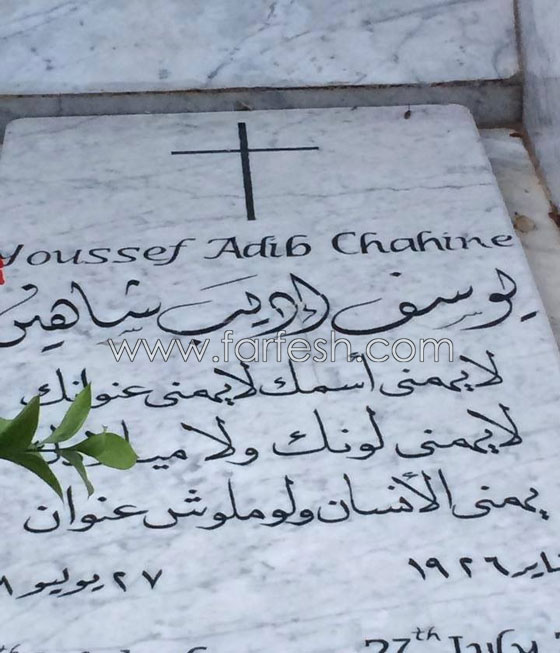 Youssef Adib Chahine
يوسف إديب شاهين
www.farfesh.com
لا يهمنى أسمك لا يهمنى عنوانك
لا يهمنى لونك ولا
يهمنى الأنسان ولو ملوش عنوان
١٩٢٦ ٢٧ يوليو
27th July